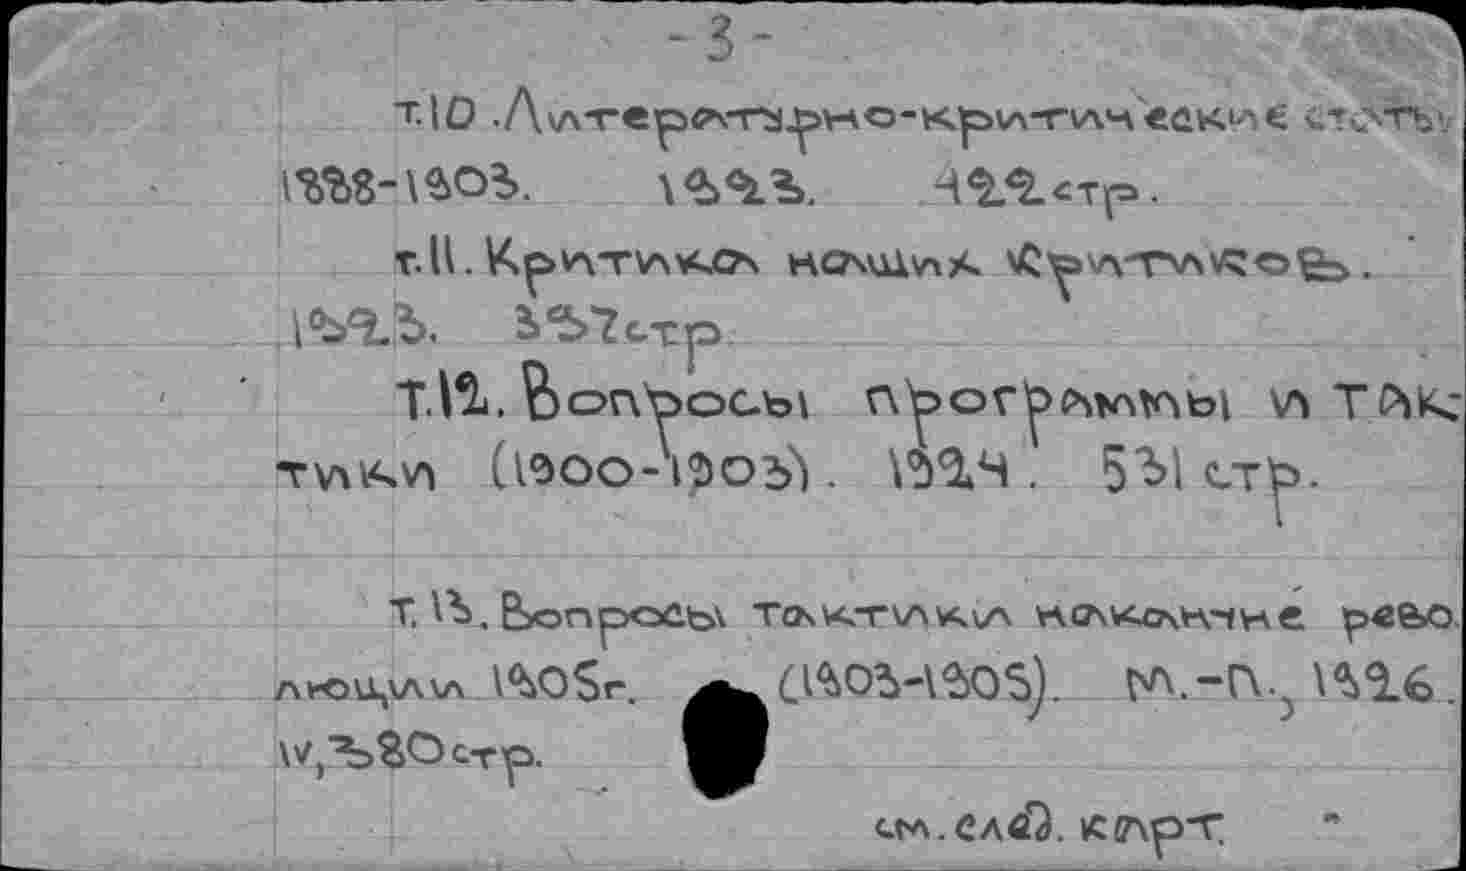 - 3 -
т.10 .Литературно-критические статьи
1888-1903. 1923. 422 стр.
т.11. Критика наших критиков.
1923. 397 стр
т.12. Вопросы программы и так-
тики (1900-1903). 1924. 531 стр.
т. 13. Вопросы тактики накануне рево
люции 1905г. (1903-1905). М.-Л., 1926.
IV, 380 стр.
см. след. карт.